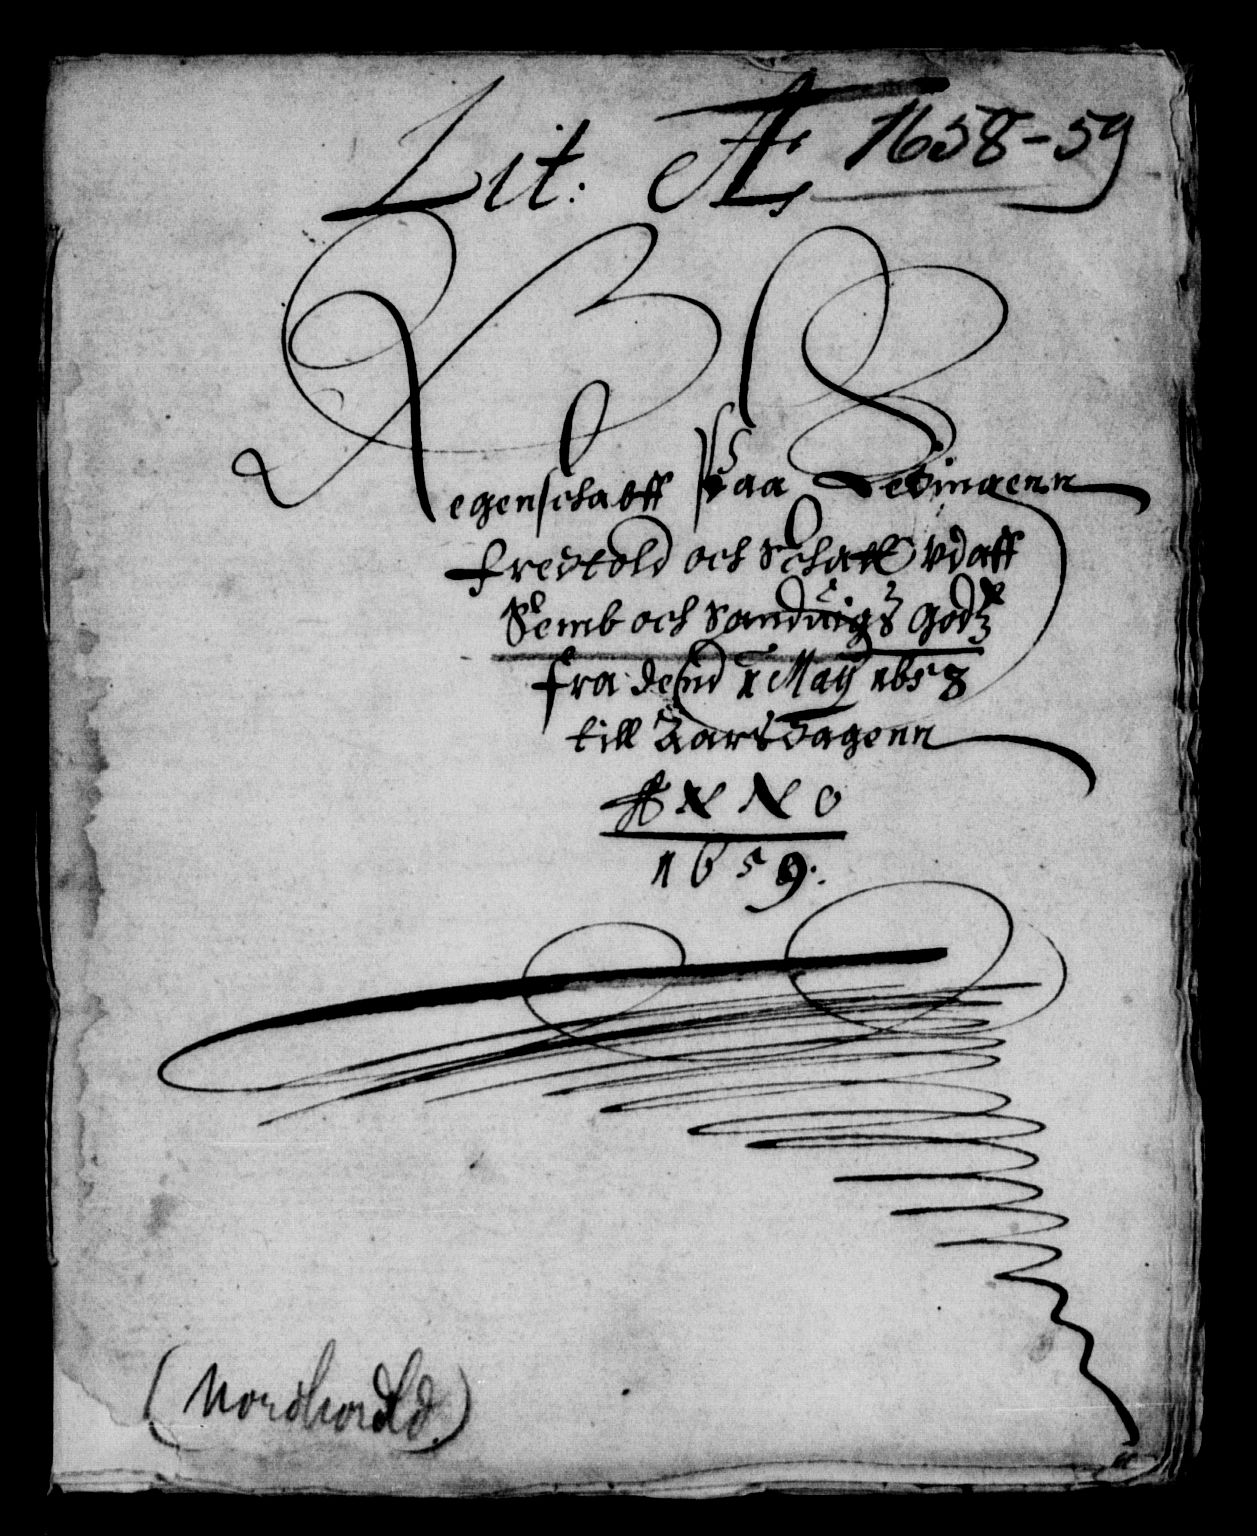 Lit: A 1658-59
Regenschabff paa Ledingenn
fredtold och Schatt vdaff
Semb och Sanduigs Godz
fra dend 1 Maÿ 1658
till Aarsdagenn
ANNO
1659.
(Nordhordld.)